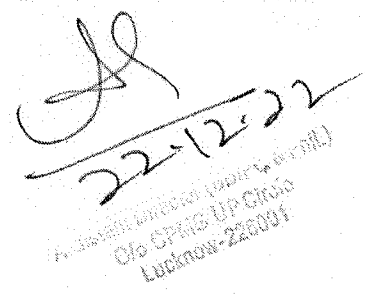 22.12.22
Assistant Director
O/o CPMG UP Circle
Lucknow-226001